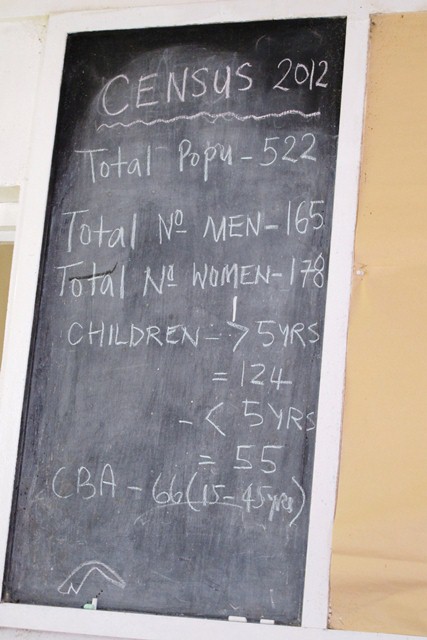 CENSUS 2012
Total Popu - 522
Total Nº MEN - 165
Total Nº WOMEN - 178
CHILDREN - > 5YRS
= 124
- < 5YRS
= 55
CBA - 66 (15 - 45yrs)